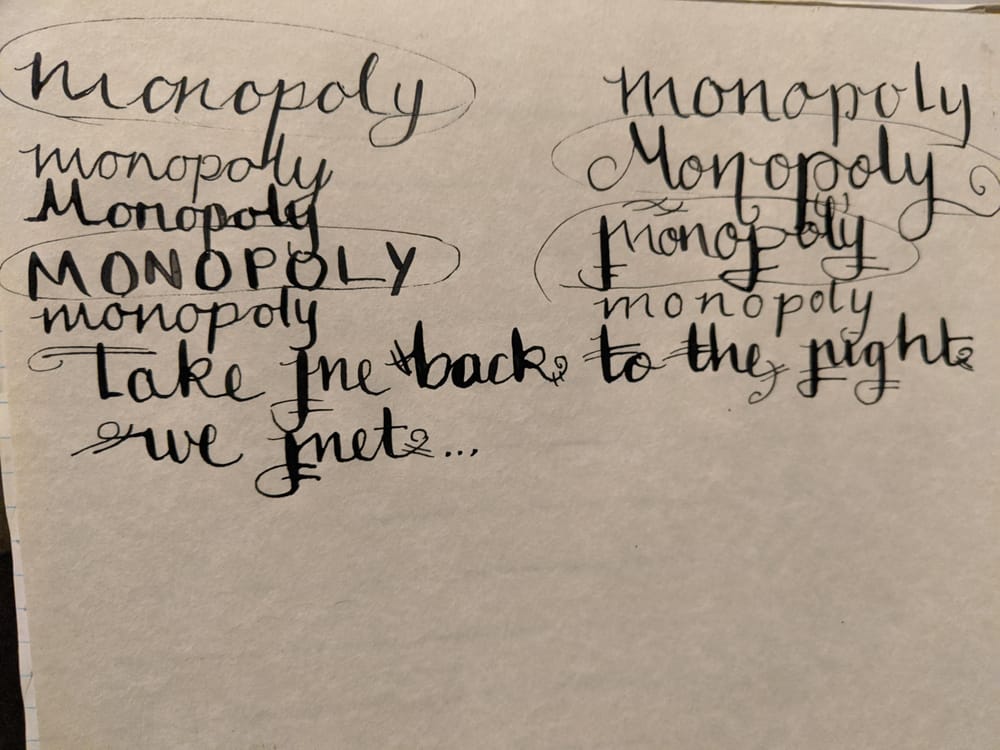 monopoly
monopoly
Monopoly
MONOPOLY
monopoly
monopoly
Monopoly
monopoly
monopoly
Take me back to the night
we met...